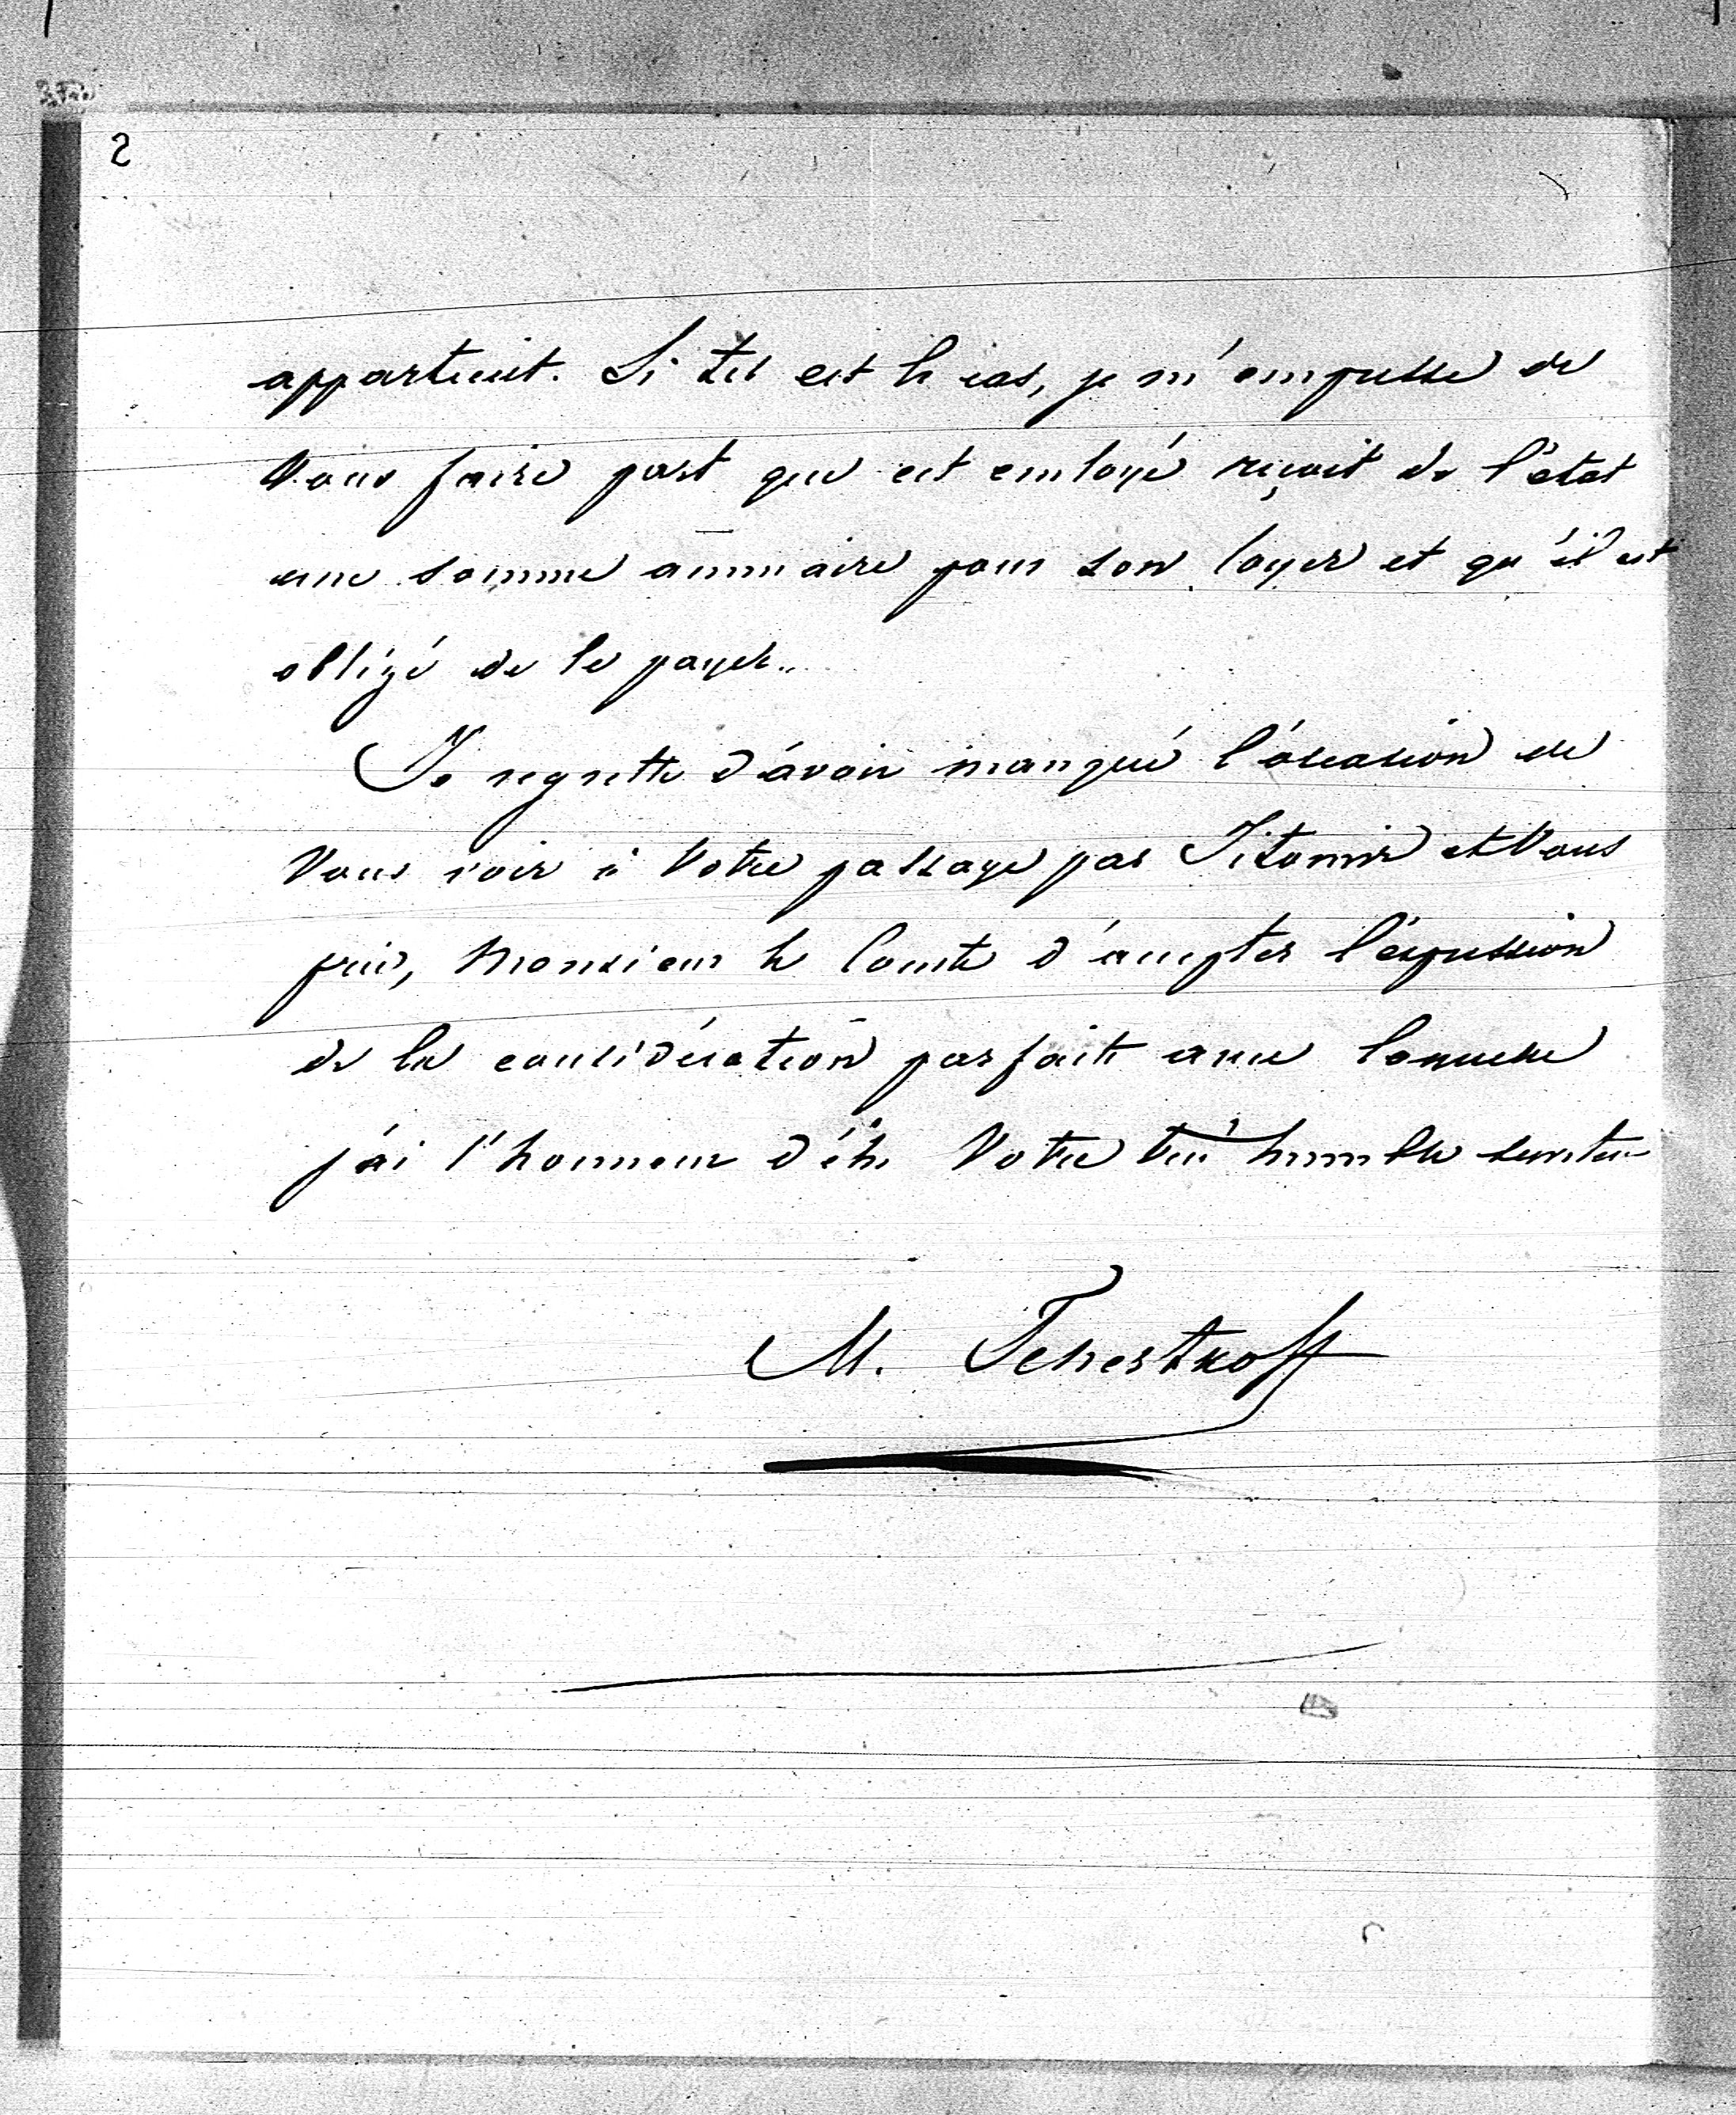 2
appartient. Si tel est le cas, je m'empresse de
Vous faire part que cet emloyé reçoit de l'état
une somme annuaire pour son loyer et qu'il est
obligé de le payer.
Je regrette d'avoir manqué l'occasion de
Vous voir à Votre passage par Jitomir et Vous
prie, Monsieur le Comte d'accepter l'expression
de la considération parfaite avec laquelle
j'ai l'honneur d'être Votre très humble serviteur
M. Tcherstkoff